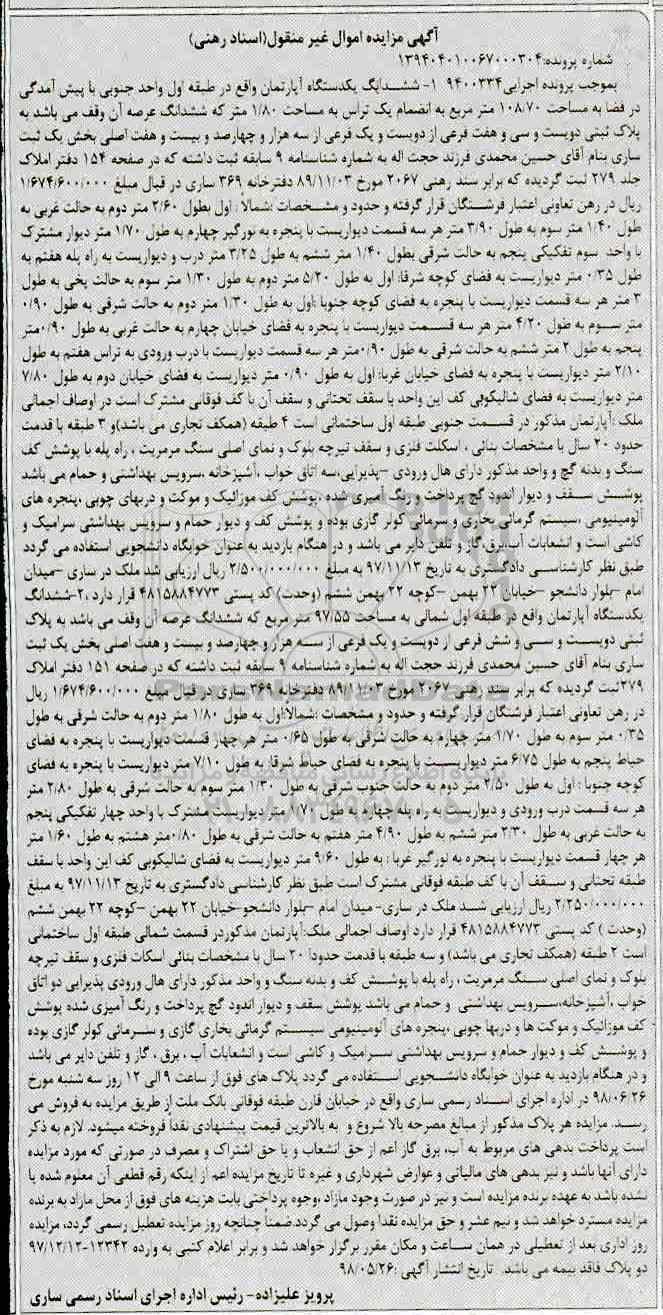 آگهی مزایده اموال غیر منقول(اسناد رهنی)
شماره پرونده:۱۳۹۴۰۴۰۱۰۰۶۷۰۰۰۳۰۴
بموجب پرونده اجرایی۹۴۰۰۳۳۴ ۱- ششدانگ یکدستگاه آپارتمان واقع در طبقه اول واحد جنوبی با پیش آمدگی
در فضا به مساحت ۱۰۸/۷۰ متر مربع به انضمام یک تراس به مساحت ۱/۸۰ متر که ششدانگ عرصه آن وقف می باشد به
پلاک ثبتی دویست و سی و هفت فرعی از دویست و یک فرعی از سه هزار و چهارصد و بیست و هفت اصلی بخش یک ثبت
ساری بنام آقای حسین محمدی فرزند حجت اله به شماره شناسنامه ۹ سابقه ثبت داشته که در صفحه ۱۵۴ دفتر املاک
جلد ۲۷۹ ثبت گردیده که برابر سند رهنی ۲۰۶۷ مورخ ۸۹/۱۱/۰۳ دفترخانه ۳۶۹ ساری در قبال مبلغ ۱/۶۷۴/۶۰۰/۰۰۰
ریال در رهن تعاونی اعتبار فرشتگان قرار گرفته و حدود و مشخصات ؛شمالاً : اول بطول ۲/۶۰ متر دوم به حالت غربی به
طول ۱/۴۰ متر سوم به طول ۳/۹۰ متر هر سه قسمت دیواریست با پنجره به نورگیر چهارم به طول ۱/۷۰ متر دیوار مشترک
با واحد سوم تفکیکی پنجم به حالت شرقی بطول ۱/۴۰ متر ششم به طول ۳/۲۵ متر درب و دیواریست به راه پله هفتم به
طول ۰/۳۵ متر دیواریست به فضای کوچه شرقا: اول به طول ۵/۲۰ متر دوم به طول ۱/۳۰ متر سوم به حالت پخی به طول
۳ متر هر سه قسمت دیواریست با پنجره به فضای کوچه جنوبا :اول به طول ۱/۳۰ متر دوم به حالت شرقی به طول ۰/۹۰
متر سوم به طول ۴/۲۰ متر هر سه قسمت دیواریست با پنجره به فضای خیابان چهارم به حالت غربی به طول ۰/۹۰متر
پنجم به طول ۲ متر ششم به حالت شرقی به طول ۰/۹۰متر هر سه قسمت دیواریست با درب ورودی به تراس هفتم به طول
۲/۱۰ متر دیواریست با پنجره به فضای خیابان غربا: اول به طول ۰/۹۰ متر دیواریست به فضای خیابان دوم به طول ۷/۸۰
متر دیواریست به فضای شالیکوبی کف این واحد با سقف تحتانی و سقف آن با کف فوقانی مشترک است در اوصاف اجمالی
ملک :آپارتمان مذکور در قسمت جنوبی طبقه اول ساختمانی است ۴ طبقه (همکف تجاری می باشد)و ۳ طبقه با قدمت
حدود ۲۰ سال با مشخصات بنائی ، اسکلت فلزی و سقف تیرچه بلوک و نمای اصلی سنگ مرمریت ، راه پله با پوشش کف
سنگ و بدنه گچ و واحد مذکور دارای هال ورودی –پذیرایی،سه اتاق خواب ،آشپزخانه ،سرویس بهداشتی و حمام می باشد
پوشش سقف و دیوار اندود گچ پرداخت و رنگ آمیزی شده ،پوشش کف موزائیک و موکت و دربهای چوبی ،پنجره های
آلومینیومی ،سیستم گرمائی بخاری و سرمائی کولر گازی بوده و پوشش کف و دیوار حمام و سرویس بهداشتی سرامیک و
کاشی است و انشعابات آب،برق،گاز و تلفن دایر می باشد و در هنگام بازدید به عنوان خوابگاه دانشجویی استفاده می گردد
طبق نظر کارشناسی دادگستری به تاریخ ۹۷/۱۱/۱۳ به مبلغ ۲/۵۰۰/۰۰۰/۰۰۰ ریال ارزیابی شد ملک در ساری –میدان
امام –بلوار دانشجو –خیابان ۲۲ بهمن –کوچه ۲۲ بهمن ششم (وحدت) کد پستی ۴۸۱۵۸۸۴۷۷۳ قرار دارد ،۲-ششدانگ
یکدستگاه آپارتمان واقع در طبقه اول شمالی به مساحت ۹۷/۵۵ متر مربع که ششدانگ عرصه آن وقف می باشد به پلاک
ثبتی دویست و سی و شش فرعی از دویست و یک فرعی از سه هزار و چهارصد و بیست و هفت اصلی بخش یک ثبت
ساری بنام آقای حسین محمدی فرزند حجت اله به شماره شناسنامه ۹ سابقه ثبت داشته که در صفحه ۱۵۱ دفتر املاک
۲۷۹ثبت گردیده که برابر سند رهنی ۲۰۶۷ مورخ ۸۹/۱۱/۰۳ دفترخانه ۳۶۹ ساری در قبال مبلغ ۱/۶۷۴/۶۰۰/۰۰۰ ریال
در رهن تعاونی اعتبار فرشتگان قرار گرفته و حدود و مشخصات ؛شمالاً:اول به طول ۱/۸۰ متر دوم به حالت شرقی به طول
۰/۳۵ متر سوم به طول ۱/۷۰ متر چهارم به حالت شرقی به طول ۰/۶۵ متر هر چهار قسمت دیواریست با پنجره به فضای
حیاط پنجم به طول ۶/۷۵ متر دیواریست با پنجره به فضای حیاط شرقا: به طول ۷/۱۰ متر دیواریست با پنجره به فضای
کوچه جنوبا : اول به طول ۲/۵۰ متر دوم به حالت جنوب شرقی به طول ۱/۳۰ متر سوم به حالت شرقی به طول ۲/۸۰ متر
هر سه قسمت درب ورودی و دیواریست به راه پله چهارم به طول ۱/۷۰ متر دیواریست مشترک با واحد چهار تفکیکی پنجم
به حالت غربی به طول ۲/۳۰ متر ششم به طول ۴/۹۰ متر هفتم به حالت شرقی به طول ۰/۸۰متر هشتم به طول ۱/۶۰ متر
هر چهار قسمت دیواریست با پنجره به نورگیر غربا : به طول ۹/۶۰ متر دیواریست به فضای شالیکوبی کف این واحد با سقف
طبقه تحتانی و سقف آن با کف طبقه فوقانی مشترک است طبق نظر کارشناسی دادگستری به تاریخ ۹۷/۱۱/۱۳ به مبلغ
۲/۲۵۰/۰۰۰/۰۰۰ ریال ارزیابی شد ملک در ساری- میدان امام –بلوار دانشجو-خیابان ۲۲ بهمن –کوچه ۲۲ بهمن ششم
(وحدت ) کد پستی ۴۸۱۵۸۸۴۷۷۳ قرار دارد اوصاف اجمالی ملک:آپارتمان مذکوردر قسمت شمالی طبقه اول ساختمانی
است ۲ طبقه (همکف تجاری می باشد) و سه طبقه با قدمت حدودا ۲۰ سال با مشخصات بنائی اسکلت فلزی و سقف تیرچه
بلوک و نمای اصلی سنگ مرمریت ، راه پله با پوشش کف و بدنه سنگ و واحد مذکور دارای هال ورودی پذیرایی دو اتاق
خواب ،آشپزخانه،سرویس بهداشتی و حمام می باشد پوشش سقف و دیوار اندود گچ پرداخت و رنگ آمیزی شده پوشش
کف موزائیک و موکت ها و دربها چوبی ،پنجره های آلومینیومی سیستم گرمائی بخاری گازی و سرمائی کولر گازی بوده
و پوشش کف و دیوار حمام و سرویس بهداشتی سرامیک و کاشی است و انشعابات آب ، برق ، گاز و تلفن دایر می باشد
و در هنگام بازدید به عنوان خوابگاه دانشجویی استفاده می گردد پلاک های فوق از ساعت ۹ الی ۱۲ روز سه شنبه مورخ
۹۸/۰۶/۲۶ در اداره اجرای اسناد رسمی ساری واقع در خیابان قارن طبقه فوقانی بانک ملت از طریق مزایده به فروش می
رسد. مزایده هر پلاک مذکور از مبالغ مصرحه بالا شروع و به بالاترین قیمت پیشنهادی نقداً فروخته میشود. لازم به ذکر
است پرداخت بدهی های مربوط به آب، برق گاز اعم از حق انشعاب و یا حق اشتراک و مصرف در صورتی که مورد مزایده
دارای آنها باشد و نیز بدهی های مالیاتی و عوارض شهرداری و غیره تا تاریخ مزایده اعم از اینکه رقم قطعی آن معلوم شده یا
نشده باشد به عهده برنده مزایده است و نیز در صورت وجود مازاد ،وجوه پرداختی بابت هزینه های فوق از محل مازاد به برنده
مزایده مسترد خواهد شد و نیم عشر و حق مزایده نقدا وصول می گردد.ضمناً چنانچه روز مزایده تعطیل رسمی گردد، مزایده
روز اداری بعد از تعطیلی در همان ساعت و مکان مقرر برگزار خواهد شد و برابر اعلام کتبی به وارده ۱۲۳۴۲-۹۷/۱۲/۱۲
دو پلاک فاقد بیمه می باشد. تاریخ انتشار آگهی :۹۸/۰۵/۲۶
پرویز علیزاده- رئیس اداره اجرای اسناد رسمی ساری